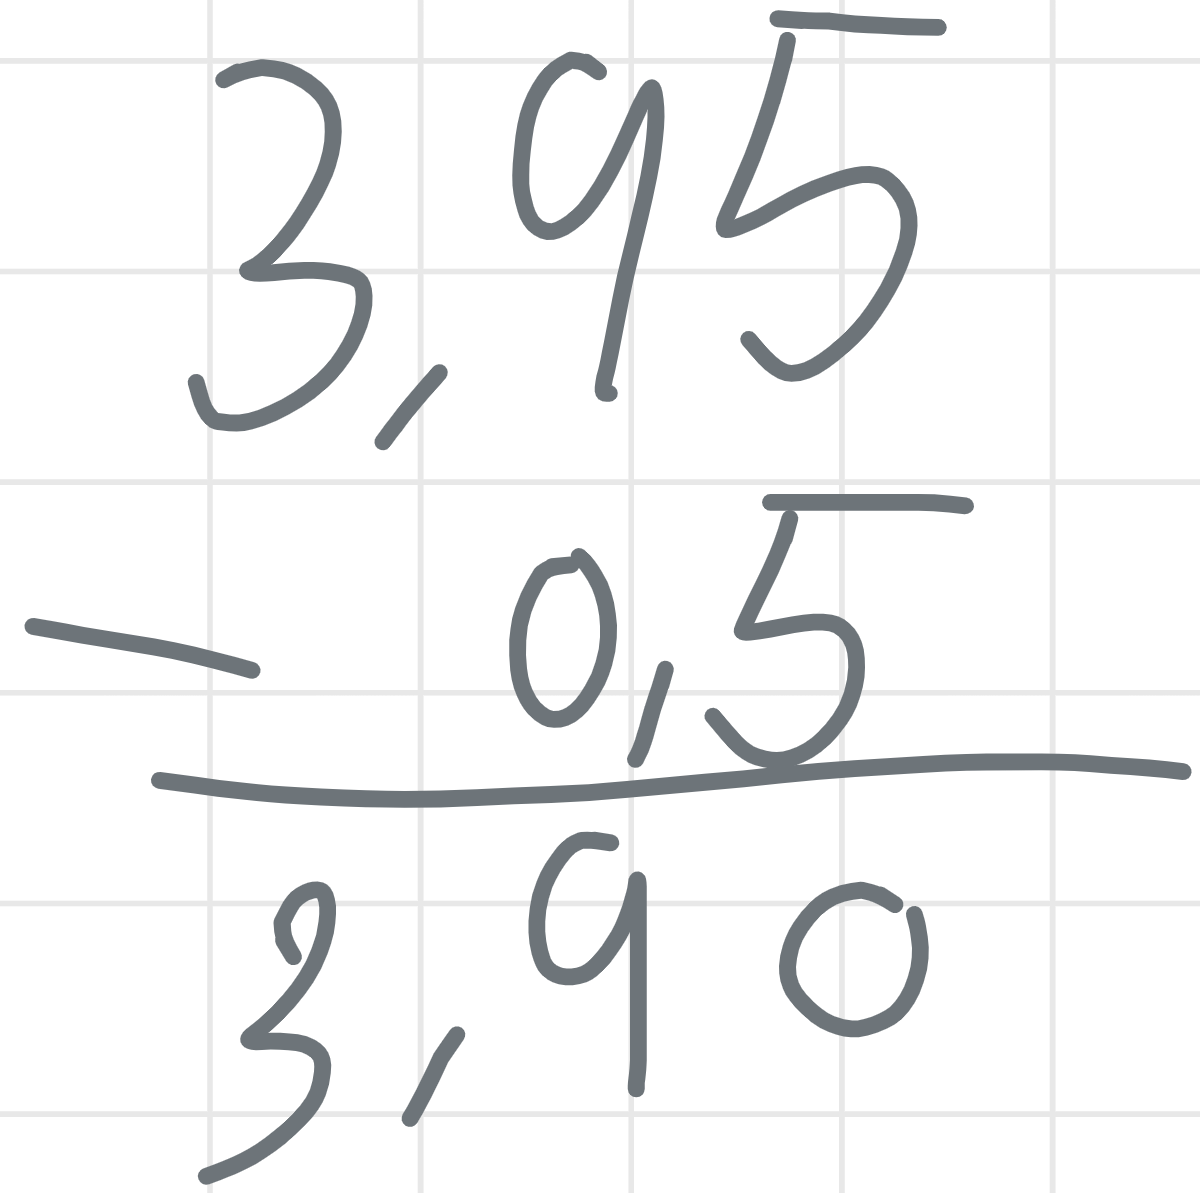 3,95
- 0,5
3,90